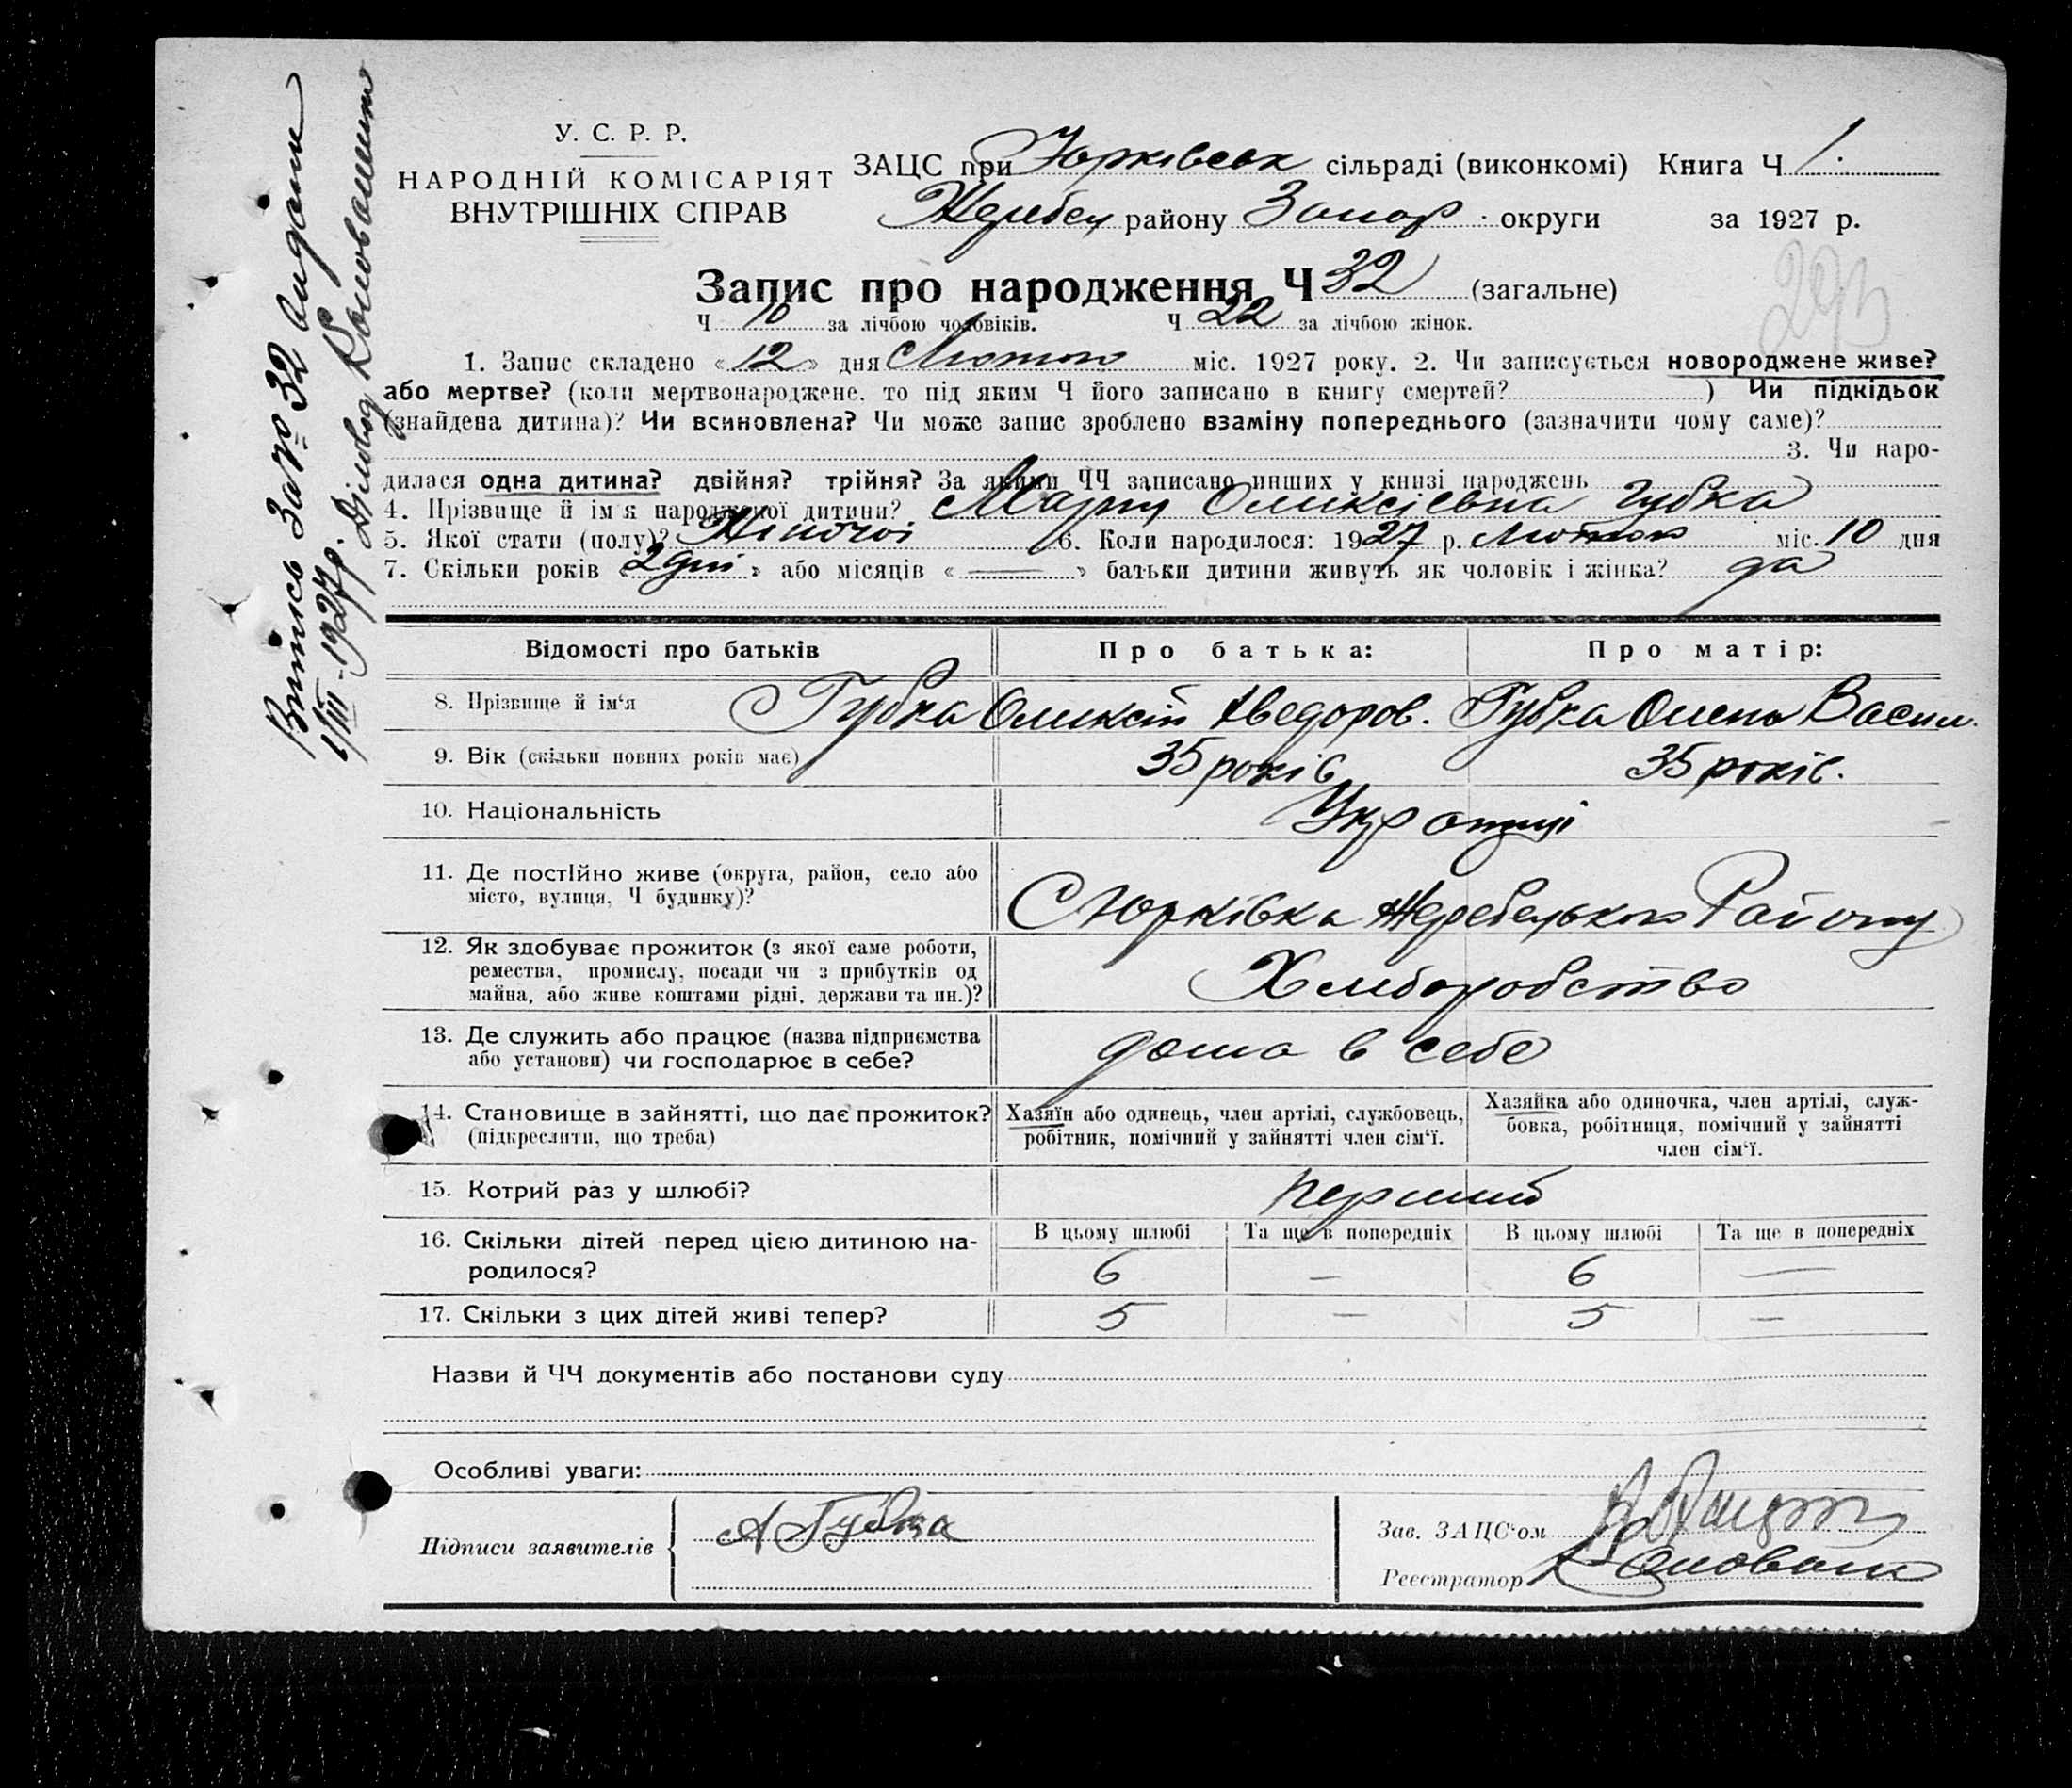 У. С. Р. Р.
НАРОДНІЙ КОМІСАРІЯТ
ВНУТРІШНІХ СПРАВ
ЗАЦС при Юрківськ сільраді (виконкомі) Книга Ч 1.
Жеребец району Запор. округи за 1927 р.
Запис про народження Ч 32 (загальне)
Ч 10 за лічбою чоловіків. Ч 22 за лічбою жінок.
1. Запис складено «12» дня Лютого міс. 1927 року. 2. Чи записується новороджене живе?
або мертве? (коли мертвонароджене, то під яким Ч його записано в книгу смертей? ) Чи підкідьок
(знайдена дитина)? Чи всиновлена? Чи може запис зроблено взаміну попереднього (зазначити чому саме)?
3. Чи наро-
дилася одна дитина? двійня? трійня? За якими ЧЧ записано инших у книзі народжень
4. Прізвище й ім'я народженої дитини? Оликсієвна Губка
5. Якої стати (полу)? Жіночої 6. Коли народилося: 1927 р. Лютого міс. 10 дня
7. Скільки років «2 дні» або місяців « — » батьки дитини живуть як чоловік і жінка? да
Відомості про батьків Про батька: Про матір:
8. Прізвище й ім'я Губка Оликсій Хведоров. Губка Олена Васил.
9. Вік (скільки повних років має) 35 років 35 років.
10. Національність Українці
11. Де постійно живе (округа, район, село або
місто, вулиця, Ч будинку)?
С Юрківка Жеребецького Району
12. Як здобуває прожиток (з якої саме роботи,
ремества, промислу, посади чи з прибутків од
майна, або живе коштами рідні, держави та ин.)?
Хлиборобство
13. Де служить або працює (назва підприємства
або установи) чи господарює в себе?
дома в себе
14. Становище в зайнятті, що дає прожиток?
(підкреслити, що треба)
Хазяїн або одинець, член артілі, службовець,
робітник, помічний у зайнятті член сім'ї.
Хазяйка або одиночка, член артілі, служ-
бовка, робітниця, помічний у зайнятті
член сім'ї.
15. Котрий раз у шлюбі? перший
16. Скільки дітей перед цією дитиною на-
родилося?
В цьому шлюбі Та ще в попередніх В цьому шлюбі Та ще в попередніх
6 — 6 —
17. Скільки з цих дітей живі тепер? 5 — 5 —
Назви й ЧЧ документів або постанови суду
Особливі уваги:
Підписи заявителів А Губка
Зав. ЗАЦС'ом
Реєстратор
Випись За № 32 видани
1/III-1927р. Діловод